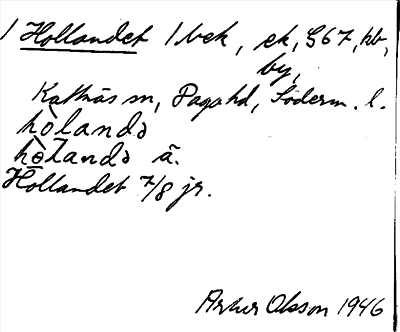 1 Hollandet 1 bek, ek, G67, hb,
by,
Kattnäs sn, Dagahd, Söderm. l.
hòlandə
hòlandə ä.
Hollandet 7/8 jr.
Arthur Olsson 1946